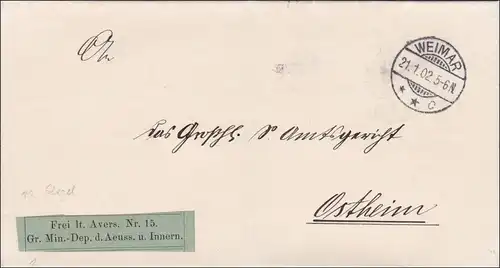 An
WEIMAR
21.1.02.5-6N.
* * c
das Großhl. S. Amtsgericht
Ostheim
Frei lt. Avers. Nr. 15.
Gr. Min.-Dep. d. Aeuss. u. Innern.